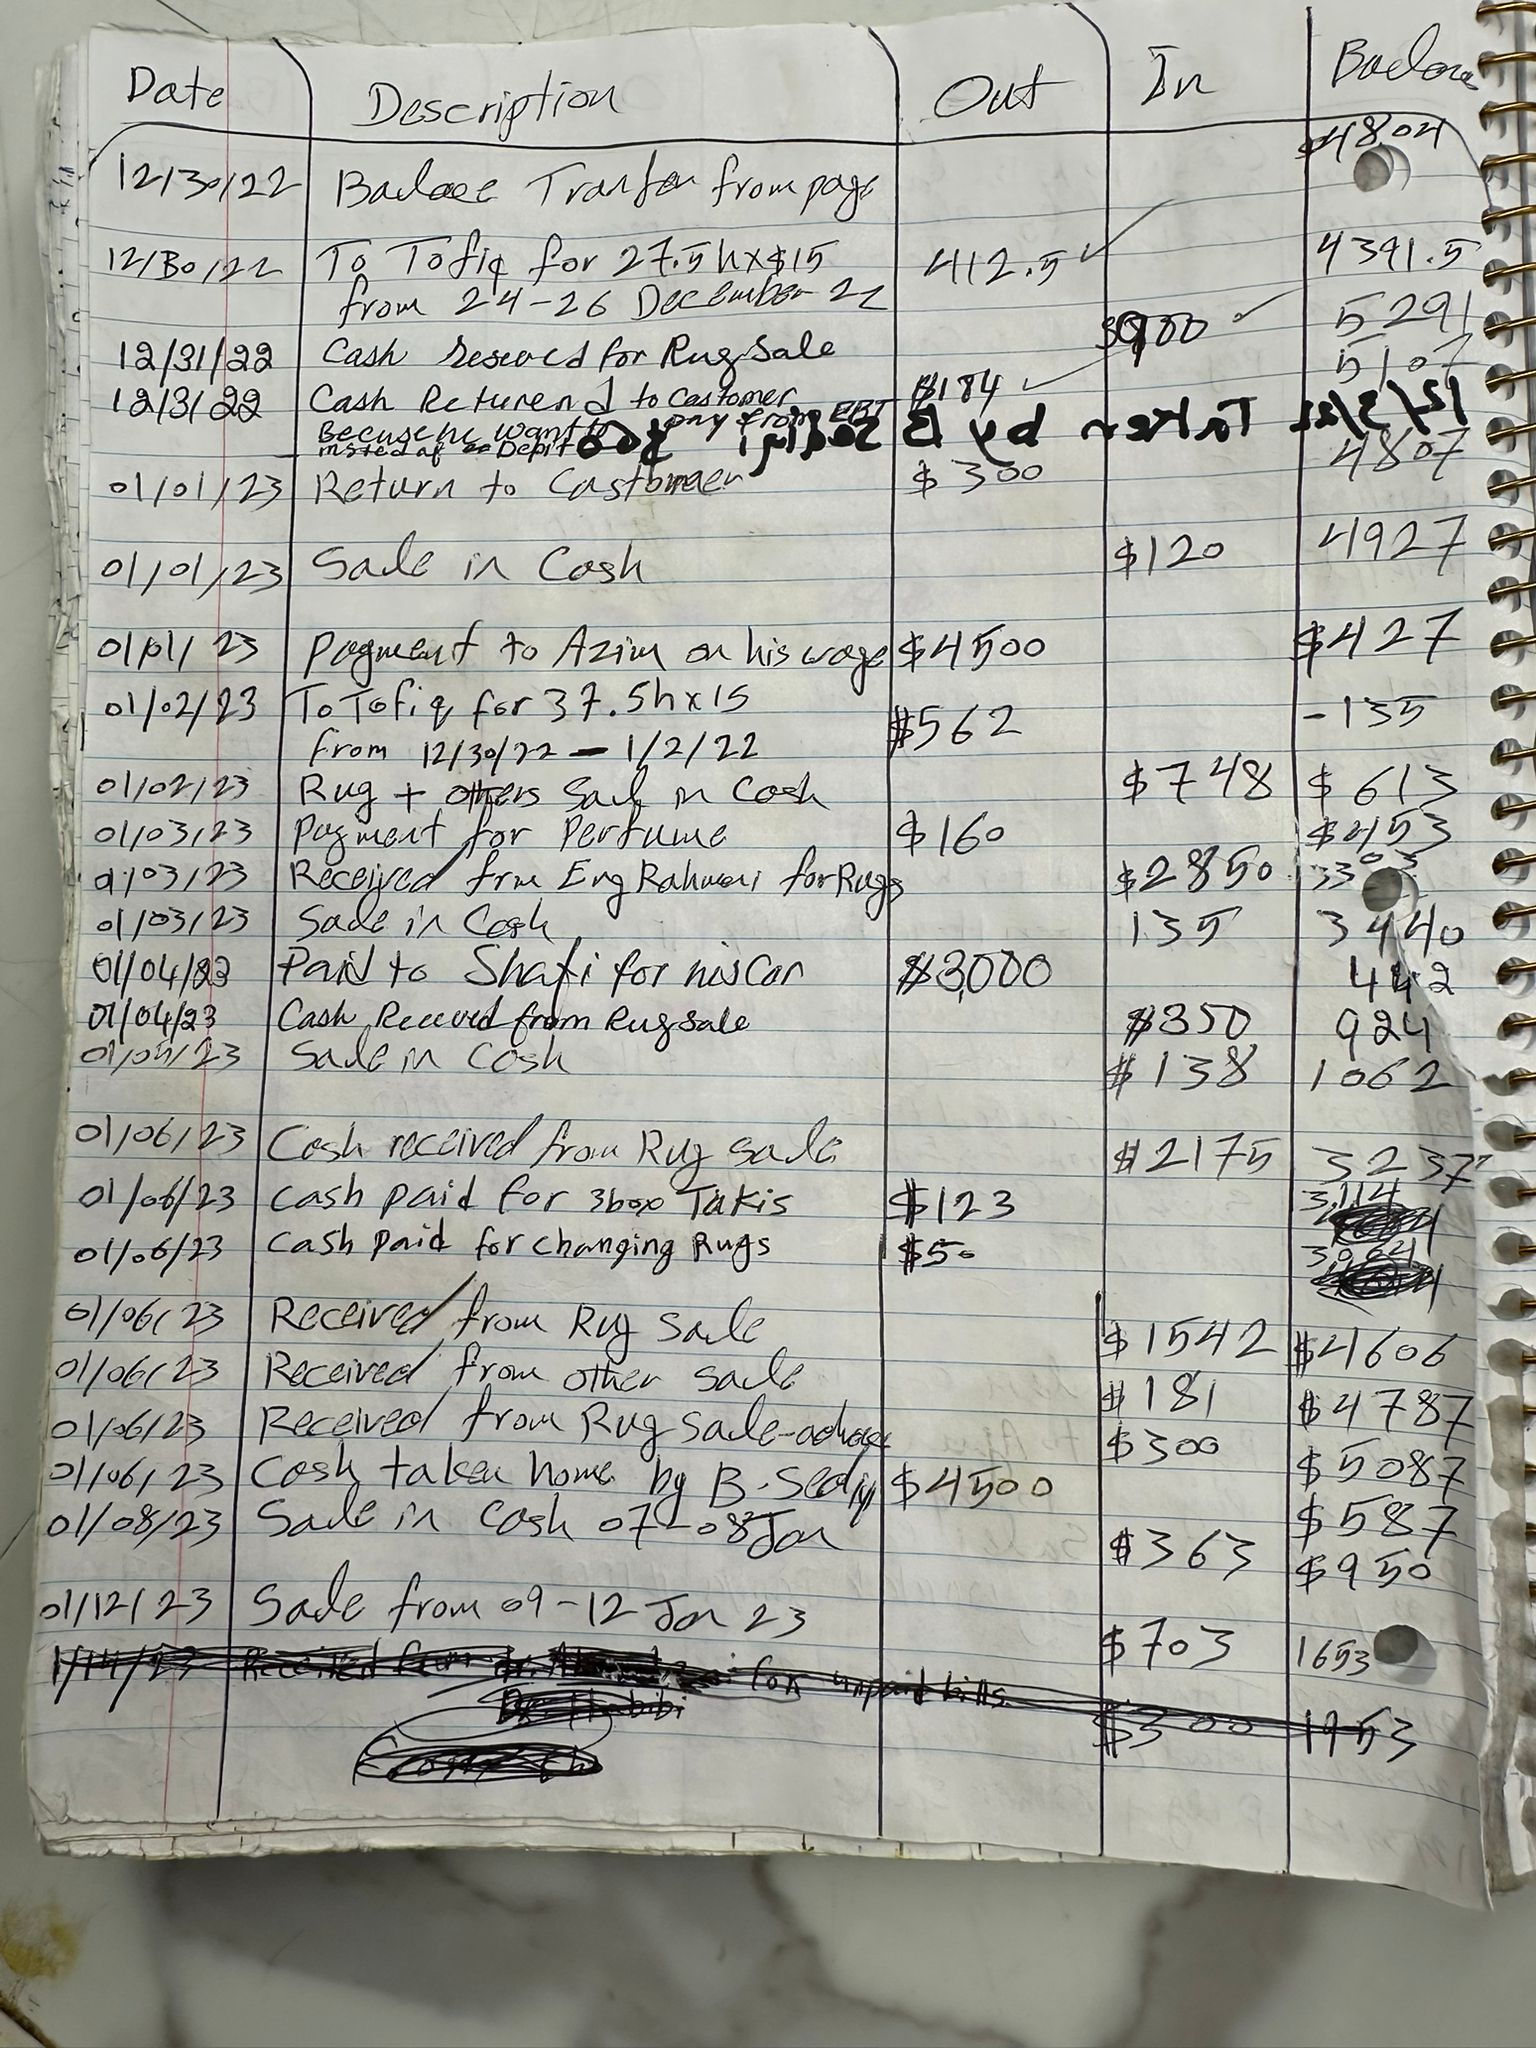 Date Description Out In Balance
12/30/22 Balace Tranfer from page $4804
12/30/22 To Tofiq for 27.5h x $15 412.5 4391.5
from 24-26 December 22
12/31/22 Cash reseved for Rug Sale 900 5291
12/31/22 Cash Returend to Castomer $184 5107
Becuse he want to pay from EBT
insted of Depit
12/31/22 Taken by B Sediqi $60
01/01/23 Return to Castomer $300 4807
01/01/23 Sale in Cash $120 4927
01/01/23 payment to Azim on his wage $4500 $427
01/02/23 To Tofiq for 37.5h x 15 $562 -135
from 12/30/22 - 1/2/22
01/02/23 Rug + others Sale in Cash $748 $613
01/03/23 Payment for Perfume $160 $453
01/03/23 Received frm Eng Rahmani for Rugs $2850 3303
01/03/23 Sale in Cash 135 3440
01/04/23 Paid to Shafi for his Car $3,000 442
01/04/23 Cash Received from Rug sale $350 924
01/05/23 Sale in Cash $138 1062
01/06/23 Cash received from Rug sale $2175 3237
01/06/23 Cash paid for 3box Takis $123 3,114
01/06/23 Cash paid for changing Rugs $50 3,064
01/06/23 Received from Rug Sale $1542 $4606
01/06/23 Received from other Sale $181 $4787
01/06/23 Received from Rug Sale- $300 $5087
01/06/23 Cash taken home by B. Sediqi $4500 $587
01/08/23 Sale in Cash 07-08 Jan $363 $950
01/12/23 Sale from 09-12 Jan 23 $703 1653
1/14/23 Received from Dr. for unpaid bills $300 1953
Dr Habibi